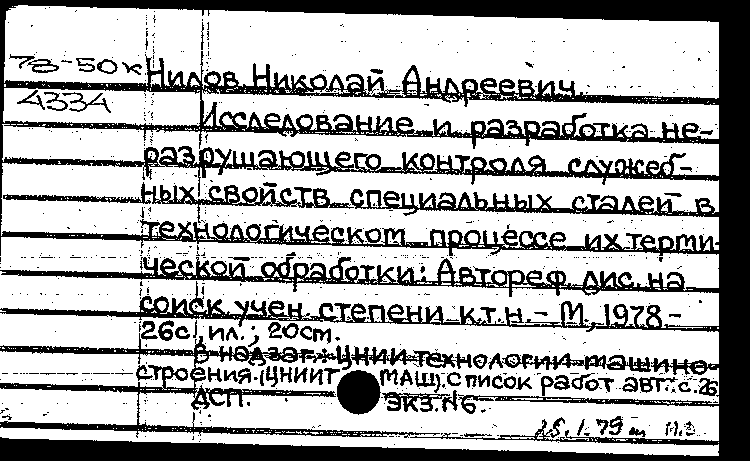 78-50к Нилов Николай Андреевич.
4334 Исследование и разработка не-
разрушающего контроля служеб-
ных свойств специальных сталей в
технологическом процессе их терми-
ческой обработки: Автореф. дис. на
соиск. учен. степени к.т.н. - М., 1978. -
26с., ил.; 20см.
В надзаг.: ЦНИИ технологии машино-
строения. (ЦНИИТМАШ). Список работ авт.: с. 26
ДСП. ЭКЗ. №6.
25.1.79